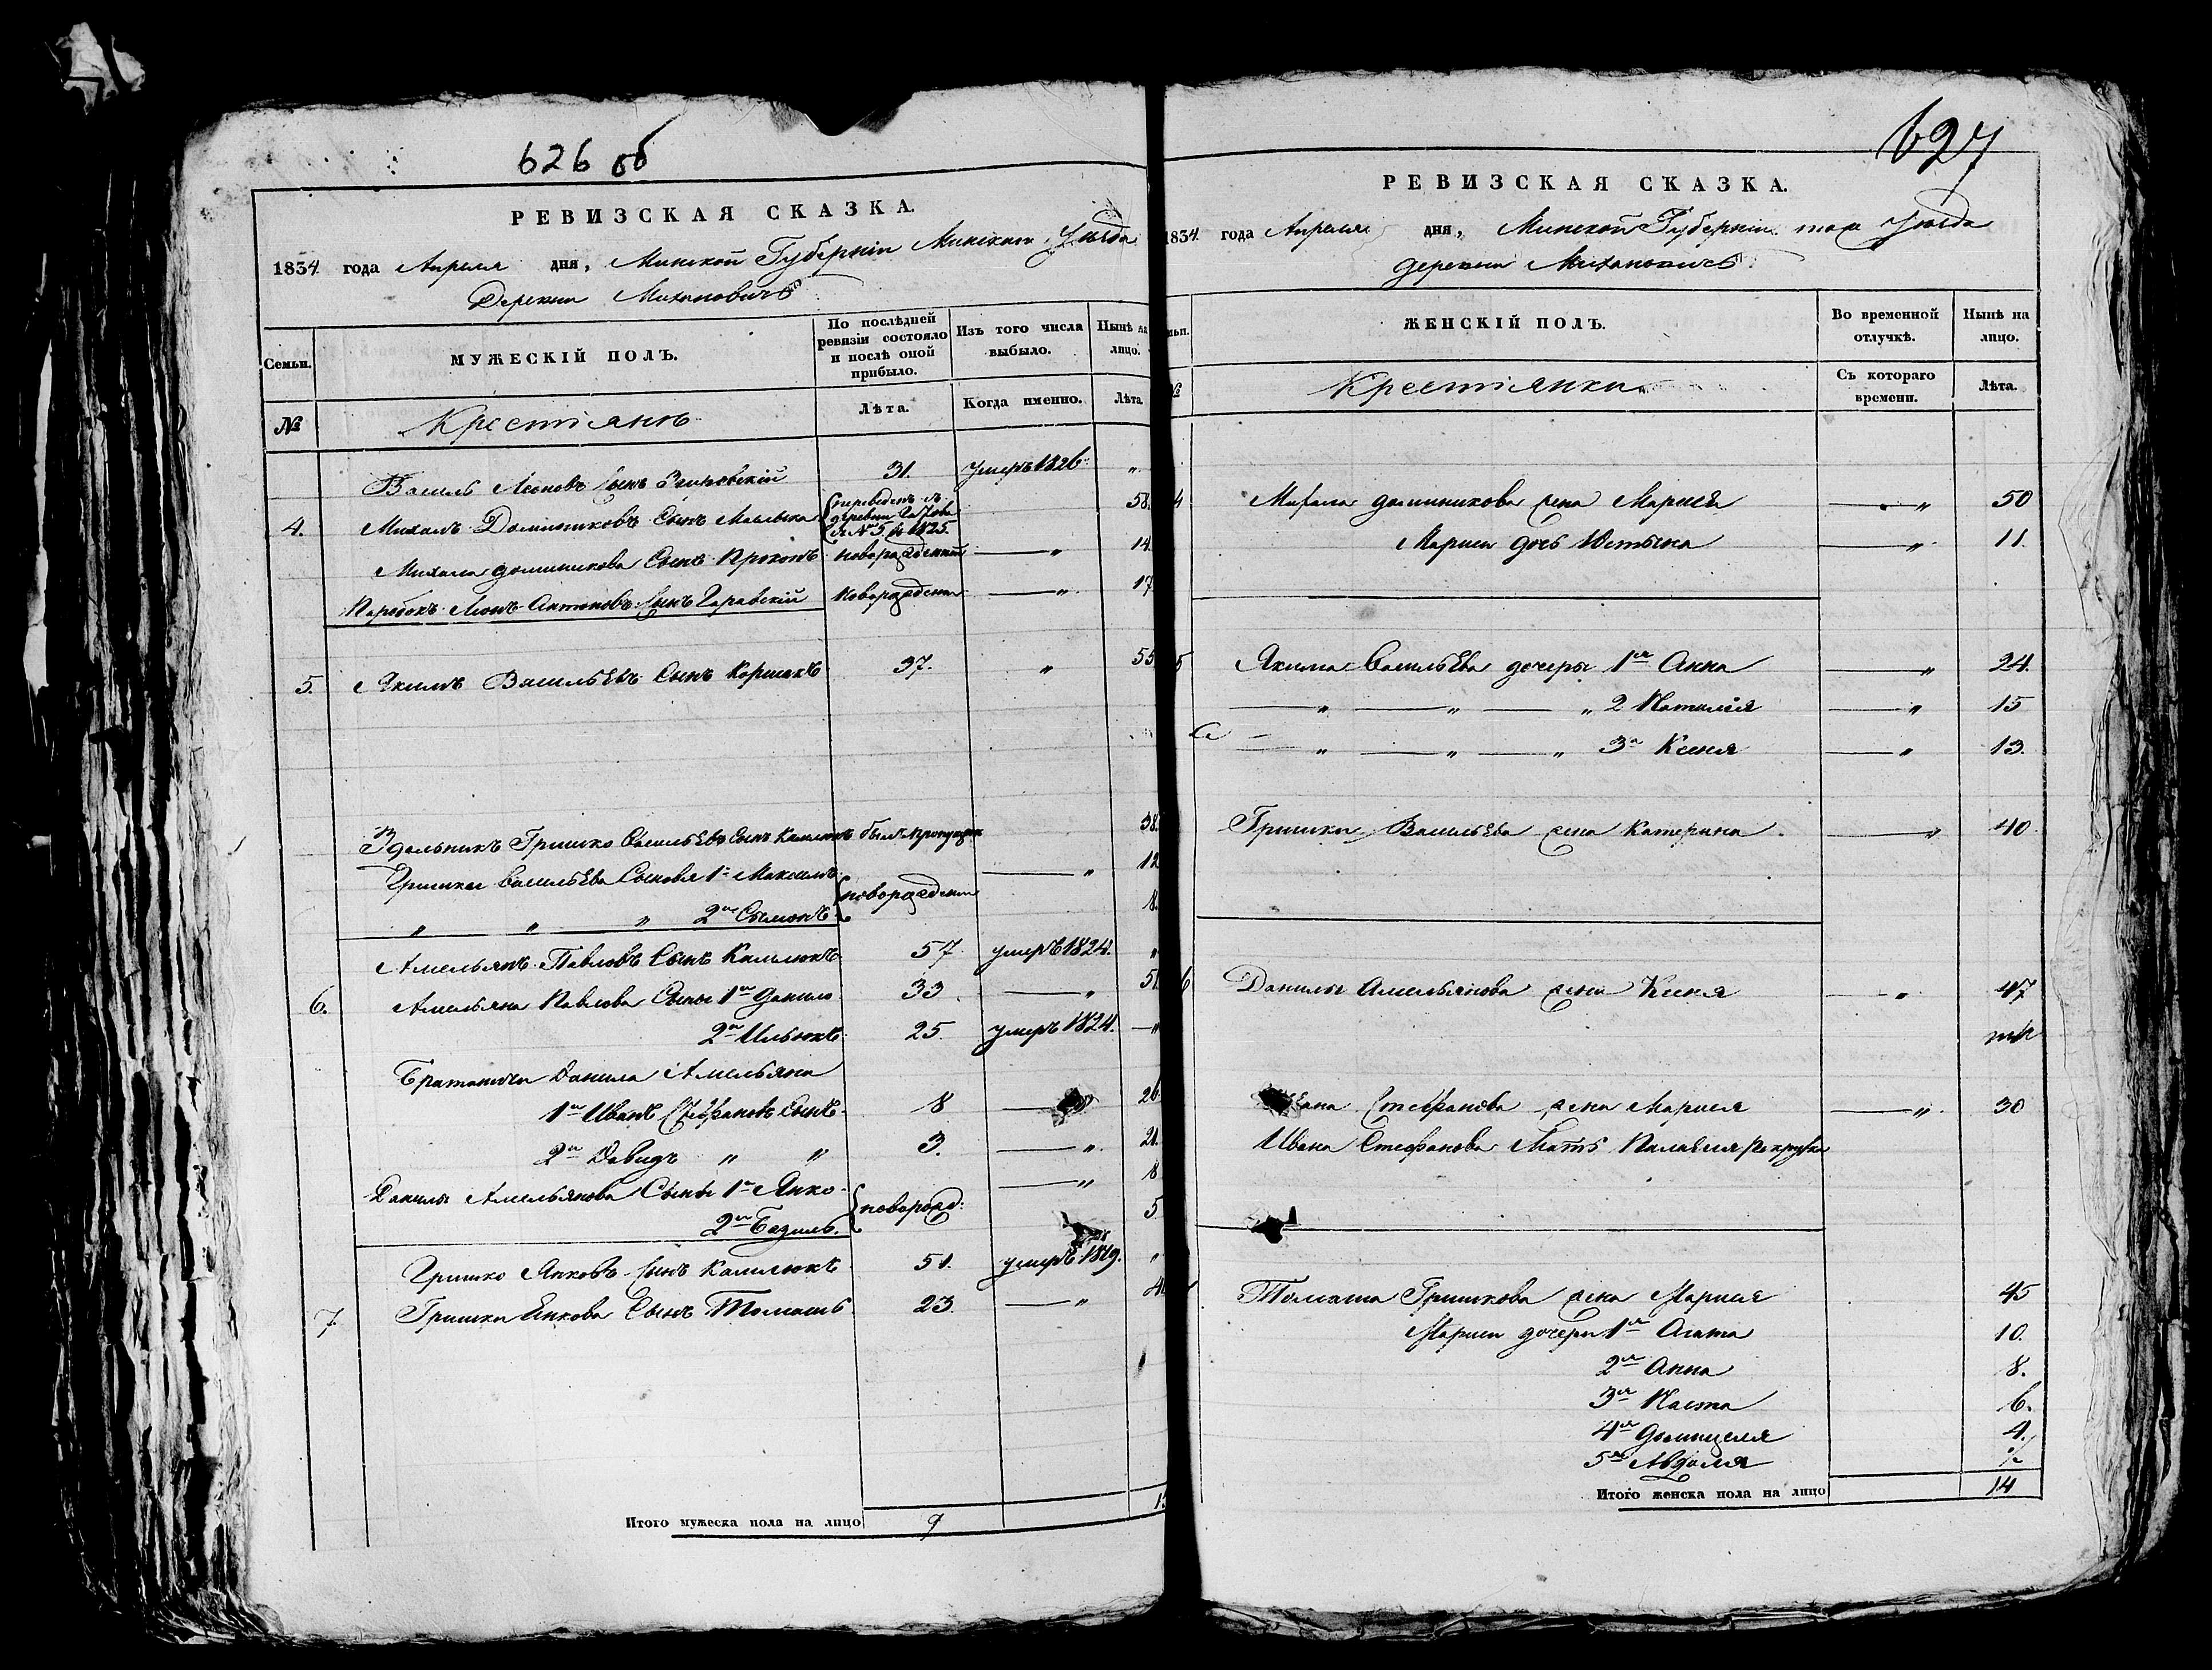 626 об
РЕВИЗСКАЯ СКАЗКА.
1834 года Апреля дня, Минской Губерніи Минскаго Уезда
Деревни Михановичъ
Семьи.
МУЖЕСКІЙ ПОЛЪ.
По послѣдней ревизіи состояло и послѣ оной прибыло.
Изъ того числа выбыло.
Нынѣ на лицо.
№
Крестіянъ
Лѣта.
Когда именно.
Лѣта
Василь Леоновъ Сынъ 31. умеръ 1826 "
4. Михалъ Доминиковъ Сынъ переведенъ съ деревни № 5 въ 1825. 58.
Михала доминикова Сынъ Прокопъ новорожденный — " 14
Паробокъ Леонъ Антоновъ Сынъ новорожденъ — " 17
5. Якимъ Васильевъ Сынъ Коршакъ 37. " 55
Здольникъ Гришко Васильевъ Сынъ былъ пропущен 38.
Гришки Васильева Сыновя 1й Максимъ новорожденны — " 12
" " " 2й Сымонъ 8.
Амельянъ Павловъ Сынъ Калилюкъ 57. умеръ 1824. "
6. Амельяна Павлова Сыны 1й Данило 33 — " 51
2й Ильюкъ 25. умеръ 1824. — "
Братаничи Данила Амельяна
1й Иванъ Стефановъ Сынъ 8 — 26
2й Давидъ " " 3. — " 21.
Данилы Амельянова Сыны 1й Янко новорожд: — " 8
2й Базиль. 5
Гришко Янковъ Сынъ Калилюкъ 51. умеръ 1819. "
7. Гришки Янкова Сынъ Томашъ 23. — "
Итого мужеска пола на лицо 9
627
РЕВИЗСКАЯ СКАЗКА.
1834 года Апреля дня, Минской Губерніи тож Уезда
деревни Михановичъ
ЖЕНСКІЙ ПОЛЪ.
Во временной отлучкѣ.
Нынѣ на лицо.
№
Крестіянки
Съ котораго времени.
Лѣта.
4 Михала доминикова жена Марися — " 50
Мариси дочь Юстына — " 11.
5 Якима Васильева дочеры 1я Анна — " 24.
— " — " — " 2 Наталія — " 15
— " — " — " 3я Ксеня — " 13.
Гришки Васильева жена Катерина — " 40
6 Данилы Амельянова жена Ксеня — " 47
Ивана Стефанова жена Марися — " 30
Ивана Стефанова Мать Палагея Рекрутка
Томаша Гришкова жена Марися 45
Мариси дочери 1я Агата 10.
2я Анна 8.
3я Наста 6.
4я Доминцеля 4.
5я Авдоля
Итого женска пола на лицо 14